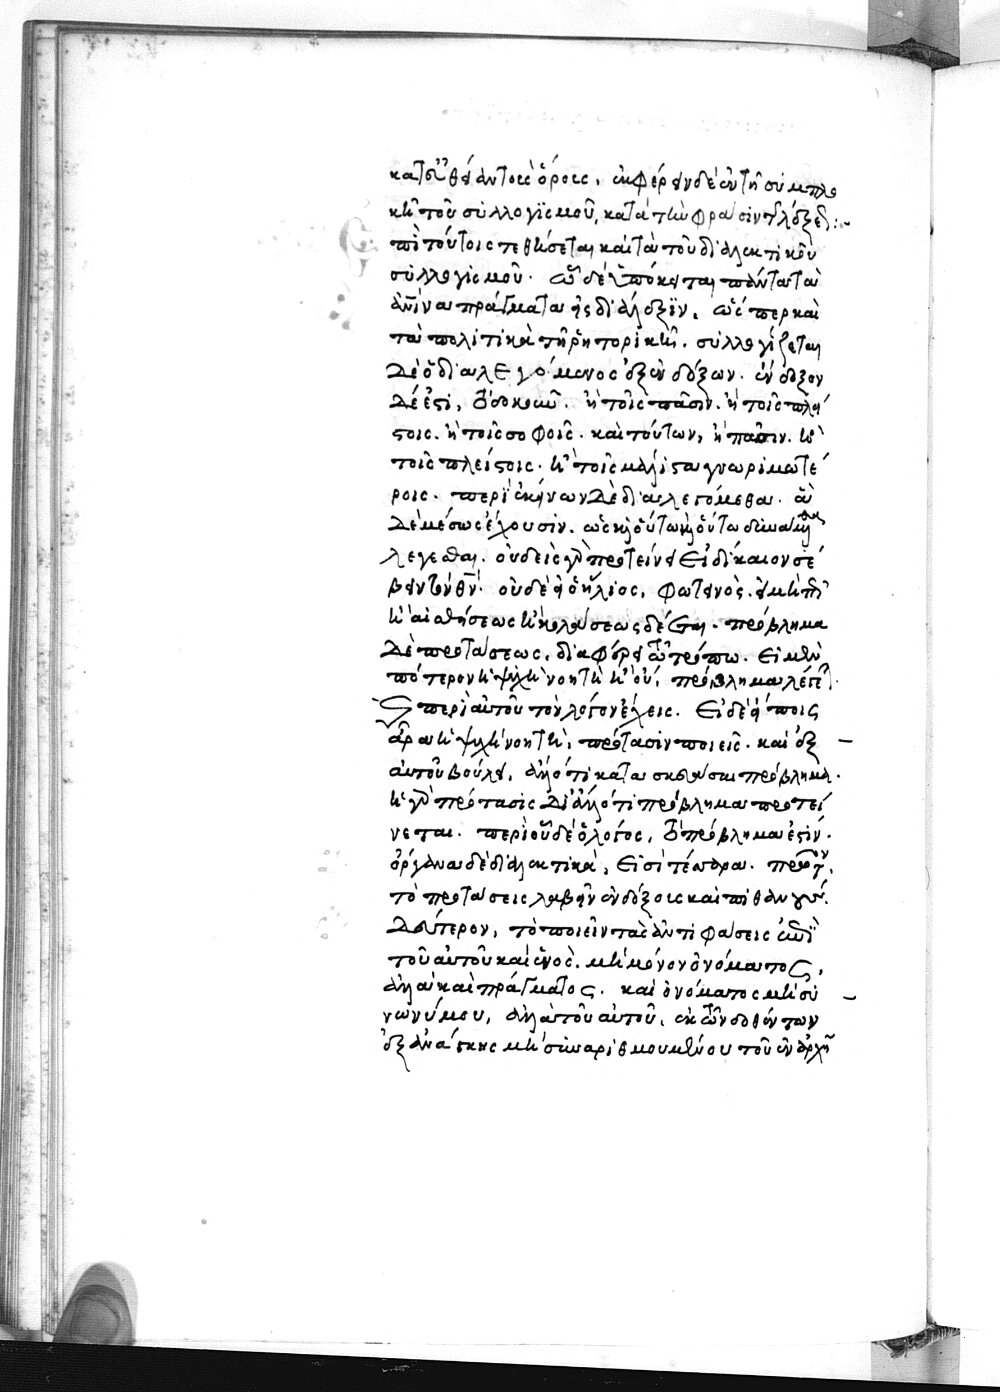 κατευθύναντος ὅροις, ἐκφέρειν δὲ ἐν τῇ συμπλο
κῇ τοῦ συλλογισμοῦ, κατὰ τὴν φράσιν τὴν λέξεως:
πὶ τούτοις τεθήσεται καὶ τὰ τοῦ διαλεκτικοῦ
συλλογισμοῦ. ᾧ δὲ ὑπόκειται πάντα τὰ
πράγματα εἰς διάλεξιν, ὥσπερ καὶ
τὰ πολιτικὰ τῇ ῥητορικῇ. συλλογίζεται
δὲ ὁ διαλεγόμενος ἐξ ἐνδόξων. ἔνδοξον
δέ ἐστι, τὸ δοκοῦν. ἢ τοῖς πᾶσιν. ἢ τοῖς πλεί
στοις. ἢ τοῖς σοφοῖς. καὶ τούτων, ἢ πᾶσιν. ἢ
τοῖς πλείστοις. ἢ τοῖς μάλιστα γνωριμωτέ
ροις. περὶ ἐκείνων δὲ διαλεγόμεθα. ἃ
δὲ μέσως ἔχουσιν. ὡς καὶ οὕτω καὶ οὕτω δύνασθαι
λέγεσθαι. οὐδεὶς γὰρ προτείνει εἰ δίκαιον σέ
βειν τὸν θεόν. οὐδὲ εἰ ὁ ἥλιος, φωτεινός. εἰ μὴ
ἢ αἰσθήσεως ἢ κολάσεως δέεται. πρόβλημα
δὲ προτάσεως, διαφέρει τῷ τρόπῳ. εἰ μὲν
πότερον ἡ ψυχὴ νοητὴ ἢ οὔ, πρόβλημα λέγει.
περὶ αὐτοῦ τὸν λόγον ἔχεις. εἰ δὲ εἴποις
ἆρα ἡ ψυχὴ νοητή, πρότασιν ποιεῖς. καὶ ἐξ
αὐτοῦ βούλει, ἄλλο τι κατασκευάσαι πρόβλημα.
ἡ γὰρ πρότασις δι' ἄλλο τι πρόβλημα προτεί
νεται. περὶ οὗ δὲ ὁ λόγος, τὸ πρόβλημα ἐστίν.
ὄργανα δὲ διαλεκτικά, εἰσὶ τέσσαρα. πρῶτον,
τὸ προτάσεις λαβεῖν ἐνδόξοις καὶ πιθανάς.
δεύτερον, τὸ ποιεῖν τὰς ἀντιφάσεις ἐπὶ
τοῦ αὐτοῦ καὶ ἑνός. μὴ μόνον ὀνόματος,
ἀλλὰ καὶ πράγματος. καὶ ὀνόματος μὴ συ
νωνύμου, ἀλλὰ τοῦ αὐτοῦ. ἐκ τῶν δοθέντων
ἐξ ἀνάγκης μὴ συναριθμουμένου τοῦ ἐν ἀρχῇ